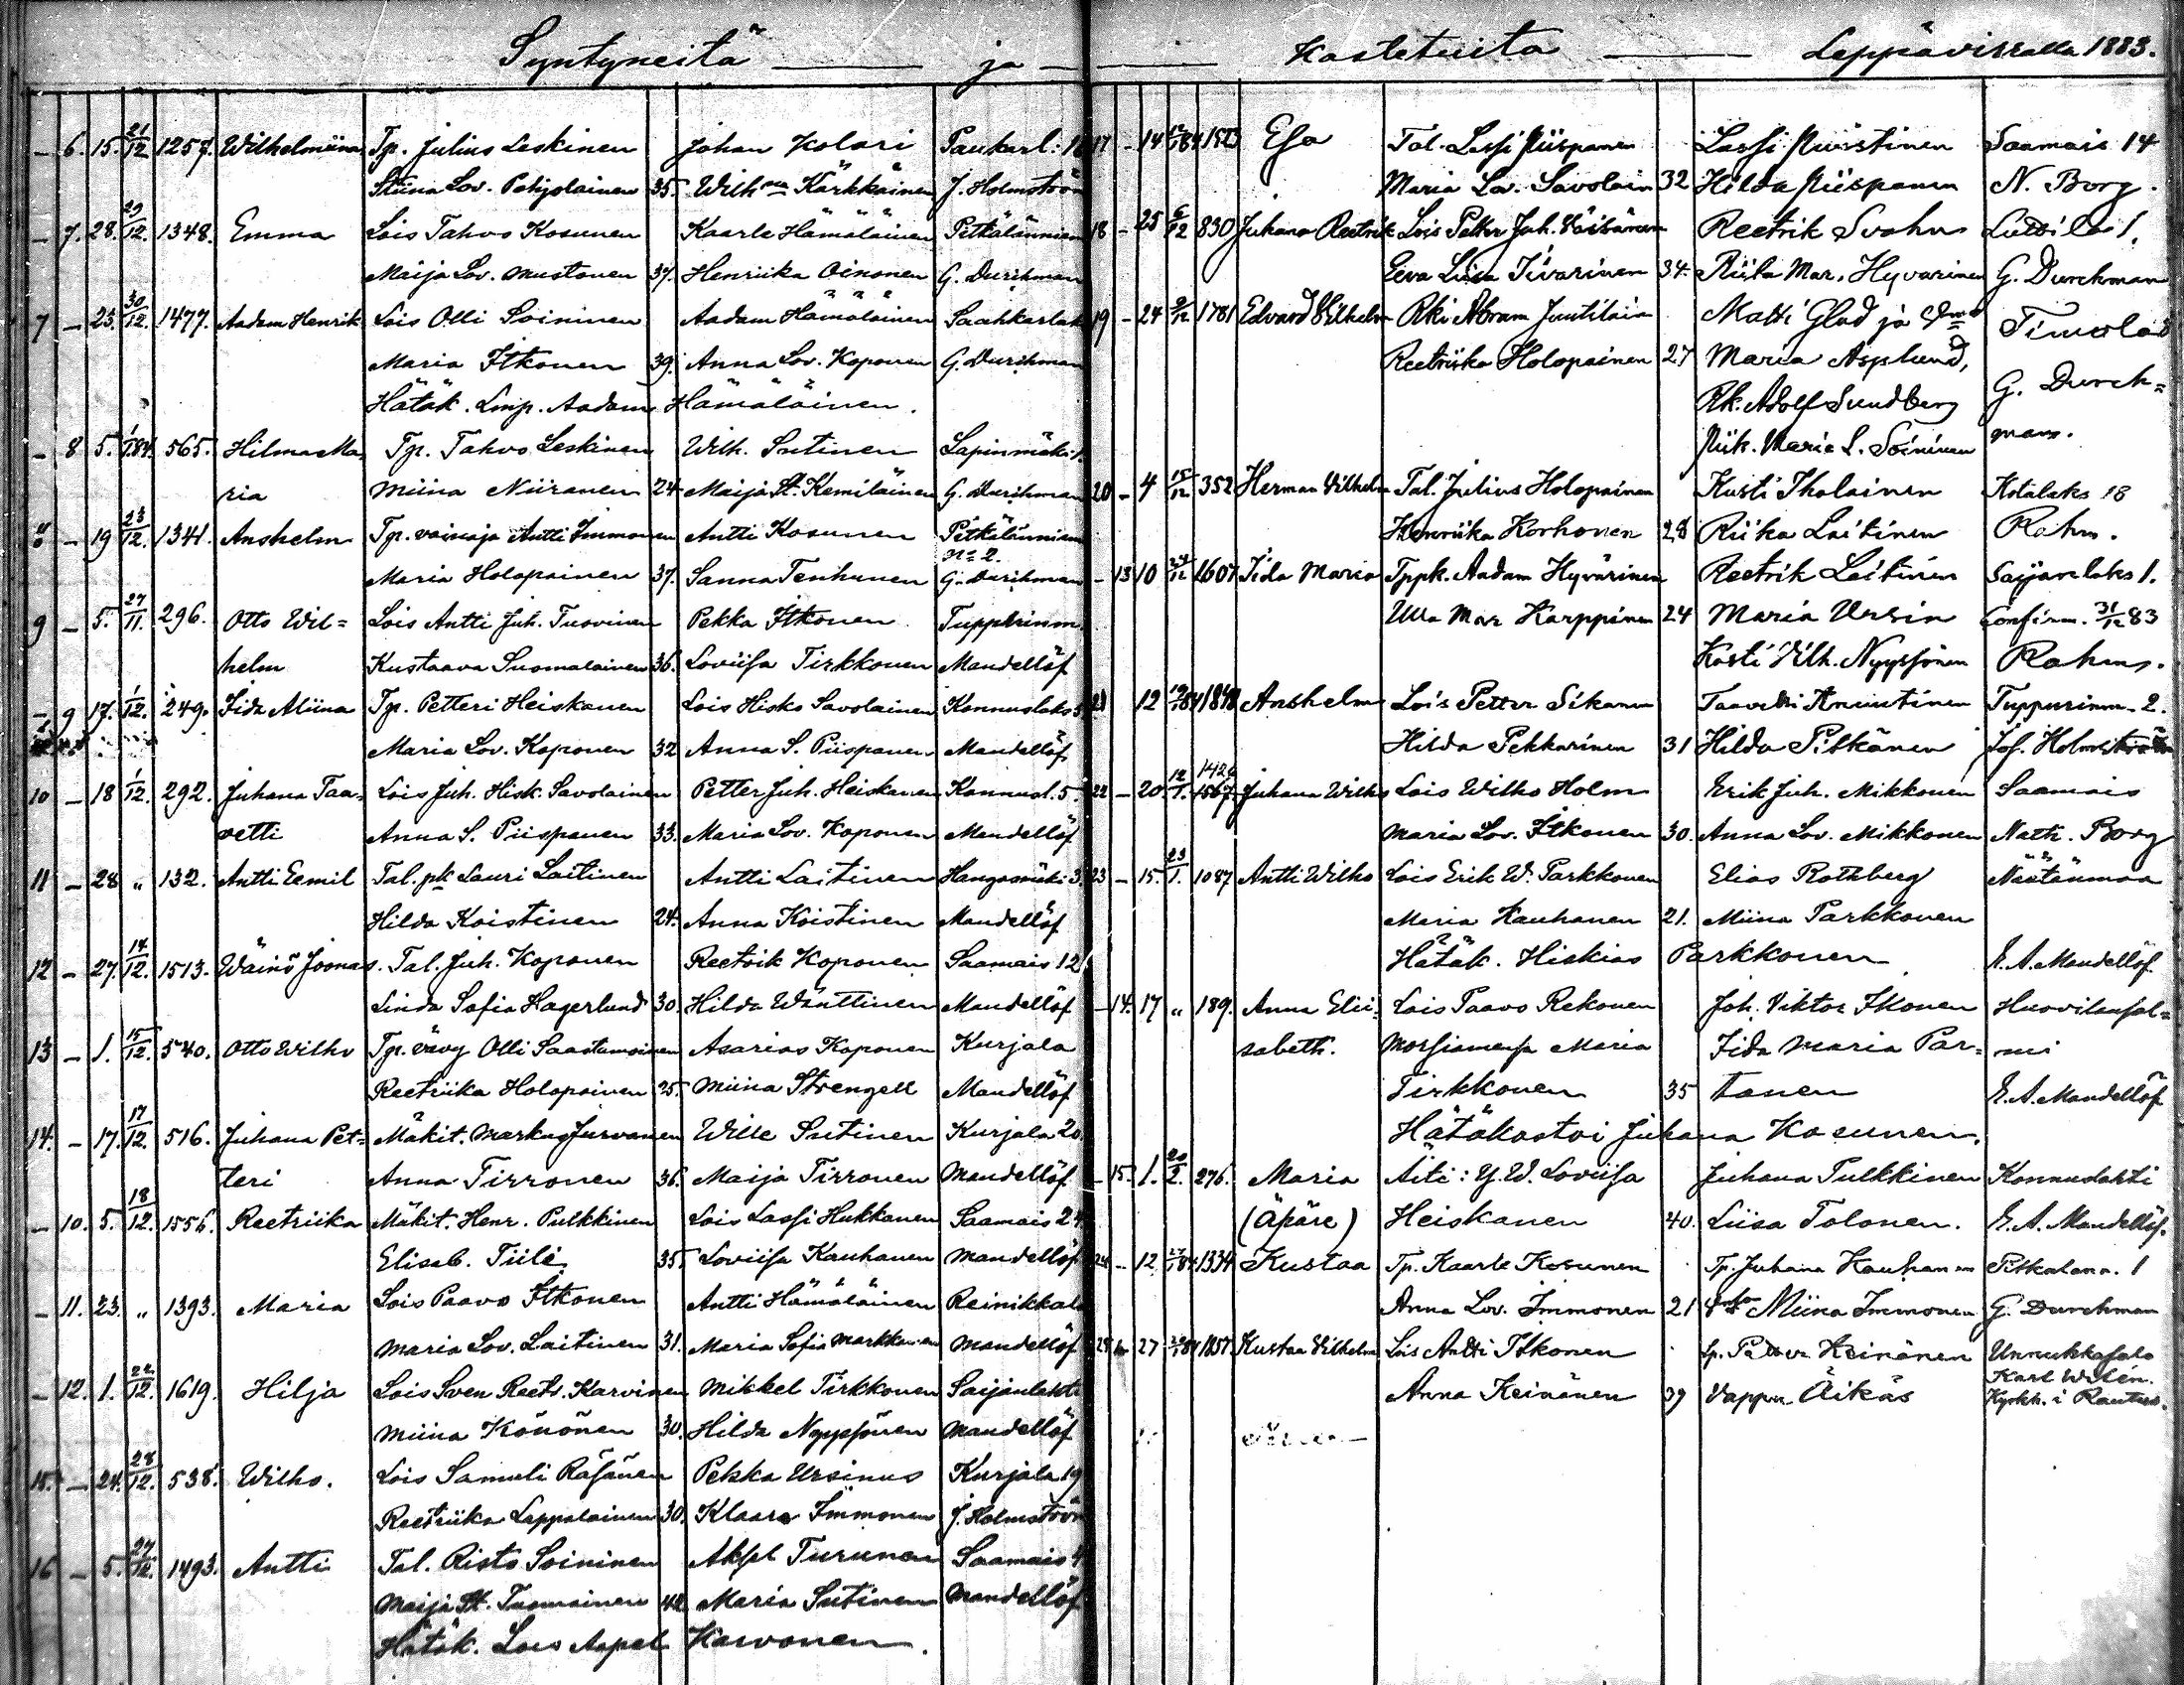 Syntyneitä — ja — Kastetuita — Leppävirralla 1883.
– 6. 15. 21/12 1257. Wilhelmiina Tp. Julius Leskinen Johan Kolari Paukarl: 16
Stiina Lov. Pohjolainen 35. Wilh:na Kärkkäinen J. Holmström
– 7. 28. 29/12. 1348. Emma Lois Tahvo Kosunen Kaarle Hämäläinen Pitkälänniem
Maija Lov. Mustonen 37. Henriika Oinonen G. Durchman
7 – 23. 30/12. 1477. Aadam Henrik Lois Olli Soininen Aadam Hämäläinen Saahkarlak
Maria Itkonen 39. Anna Lov. Koponen G. Durchman
Hätäk. Lmp. Aadam Hämäläinen.
– 8 5. 1/1 84. 565. Hilma Ma- Tp. Tahvo Leskinen Wilh. Sutinen Lapinmäki 1.
ria Miina Niiranen 24 Maija St. Kemiläinen G. Durchman
8 – 19 23/12. 1341. Anshelm Tp. vainaja Antti Immonen Antti Kosunen Pitkälänniem
№ 2.
Maria Holopainen 37. Sanna Tenhunen G. Durchman
9 – 5. 27/11. 296. Otto Wil= Lois Antti Juh. Tuovinen Pekka Itkonen Tuppurinm.
helm Kustaava Suomalainen 36. Loviisa Tirkkonen Mandellöf
– 9 17. 1/12. 249. Iida Aliina Tp. Petteri Heiskanen Lois Hisko Savolainen Konnuslaks 5
Maria Lov. Koponen 32 Anna S. Piispanen Mandellöf
10 – 18 1/12. 292. Juhana Taa= Lois Juh. Hisk. Savolainen Petter Juh. Heiskanen Konnusl. 5.
vetti Anna S. Piispanen 33. Maria Lov. Koponen Mandellöf
11 – 28 „ 132. Antti Eemil Tal. pk Lauri Laitinen Antti Laitinen Hangasmäki 3.
Hilda Koistinen 24. Anna Koistinen Mandellöf
12 – 27. 14/12. 1513. Wäinö Joonas. Tal. Juh. Koponen Reetrik Koponen Saamais 12
Linda Sofia Hagerlund 30. Hilda Wänttinen Mandellöf
13 – 1. 15/12. 540. Otto Wilho Tp. vävy Olli Saastamoinen Asarias Koponen Kurjala
Reetriika Holopainen 25. Miina Strengell Mandellöf
14. – 17. 17/12. 516. Juhana Pet= Mäkit. Markus Jurvanen Wille Sutinen Kurjala 20
teri Anna Tirronen 36. Maija Tirronen Mandellöf
– 10. 5. 18/12. 1556. Reetriika Mäkit. Henr. Pulkkinen Lois Lassi Hukkanen Saamais 24
Elisab. Tiili 35. Loviisa Kauhanen Mandellöf
– 11. 23. „ 1393. Maria Lois Paavo Itkonen Antti Hämäläinen Reinikkal
Maria Lov. Laitinen 31. Maria Sofia Markkanen Mandellöf
– 12. 1. 22/12. 1619. Hilja Lois Sven Reetr. Karvinen Mikkel Tirkkonen Saijanlahti
Miina Könönen 30. Hilda Nyyssönen Mandellöf
15. – 24. 28/12. 538. Wilho. Lois Samuli Räsänen Pekka Ursinus Kurjala 19
Reetriika Leppalainen 30. Klaara Immonen J. Holmström
16 – 5. 27/12. 1493. Antti Tal. Risto Soininen Aksel Turunen Saamais 4
Maija St. Tuomainen 42 Maria Sutinen Mandellöf
Hätäk. Lois Aapel Karvonen.
17 – 14 12/1 84 1523 Esa Tal. Lassi Piispanen Lassi Puustinen Saamais 14
Maria Lov. Savolain 32 Hilda Piispanen N. Borg.
18 – 25 6/12 830 Juhana Reetrik Lois Petter Juh. Väisänen Reetrik Svahn Luttila 1.
Eeva Liisa Tivarinen 34. Riita Mar. Hyvarinen G. Durchman
19 – 24 9/12 1781 Edvard Vilhelm Rki Abram Juutilain Matti Glad ja Vmo Timola
Reetriika Holopainen 27 Maria Asplund, G. Durch=
Rk. Adolf Sundberg
Piik. Maria L. Soininen man.
20 – 4 15/12 352 Herman Vilhelm Tal. Julius Holopainen Kusti Tholainen Kotalaks 18
Henriika Korhonen 28 Riika Laitinen Rahm.
– 13 10 24/12 1607 Iida Maria Tppk. Aadam Hyvärinen Reetrik Laitinen Saijanlaks 1.
Ulla Mar Karppinen 24 Maria Ursin Confirm. 31/12 83
Kosti Vilh. Nyyssönen Rahm.
21 12 19/1 84 1848 Anshelm Lois Petter Sikanen Taavetti Knuutinen Tuppurinm. 2.
Hilda Pekkarinen 31 Hilda Pitkänen Jos. Holmström
1426
22 – 20. 12/1. 1567. Juhana Wilho Lois Wilho Holm Erik Juh. Mikkonen Saamais
Maria Lov. Itkonen 30. Anna Lov. Mikkonen Nath. Borg
23 – 15. 23/1. 1087 Antti Wilho Lois Erik W. Parkkonen Elias Rothberg Näätänmaa
Maria Kauhanen 21. Miina Parkkonen
Hätäk. Hiskias Parkkonen E. A. Mandellöf.
– 14. 17 „ 189. Anna Elii= Lois Paavo Rekonen Joh. Viktor Ikonen Huovilansal=
sabeth. Morsiamensa Maria Iida Maria Par= mi
Tirkkonen 35 tanen E. A. Mandellöf
Hätäkastoi Juhana Kosunen.
– 15. 1. 20/2. 276. Maria Äiti: Y. W. Loviisa Juhana Pulkkinen Konnuslahti
(Äpäre) Heiskanen 40. Liisa Tolonen. E. A. Mandellöf.
24 – 12 27/1 84 1334 Kustaa Tp. Kaarle Kosunen Tp. Juhana Kauhanen Pitkalann. 1
Anna Lov. Immonen 21 Miina Immonen G. Durchman
27 1857 Kustaa Vilhelm Lois Antti Itkonen Lp. Petter Keinänen Unnukkasalo
Karl Wilén.
Anna Keinänen 39 Vappu Äikäs Kyrkh. i Rantas.